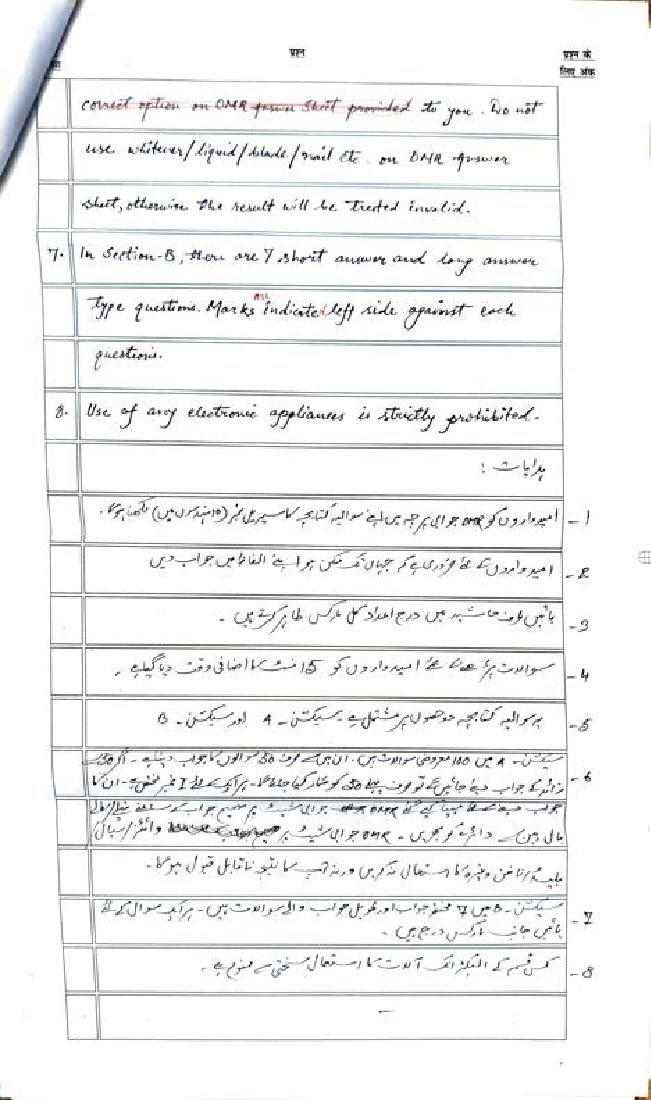 प्रश्न
प्रश्न के
लिए अंक
correct option on OMR answer sheet provided to you. Do not
use whitener/liquid/blade/nail etc. on OMR Answer
sheet, otherwise the result will be treated invalid.
7. In Section-B, there are 7 short answer and long answer
type questions. Marks are indicated left side against each
questions.
8. Use of any electronic appliances is strictly prohibited.
ہدایات :
1- امیدواروں کو OMR جوابی پرچہ میں اپنے سوالیہ کتابچہ کا سیریل نمبر (10 ہندسوں میں) لکھنا ہوگا۔
2- امیدواروں کے لئے ضروری ہے کہ جہاں تک ممکن ہو اپنے الفاظ میں جواب دیں
3- بائیں طرف حاشیہ میں درج اعداد کل مارکس ظاہر کرتے ہیں ۔
4- سوالات پڑھنے کے لئے امیدواروں کو 15 منٹ کا اضافی وقت دیا گیا ہے ۔
5- یہ سوالیہ کتابچہ دو حصوں پر مشتمل ہے۔ سیکشن - A اور سیکشن - B
6- سیکشن - A میں 100 معروضی سوالات ہیں، ان میں سے صرف 50 سوالوں کا جواب دینا ہے ۔ اگر 50 سے
زائد کے جواب دیئے جائیں گے تو صرف پہلے 50 کو شمار کیا جائے گا۔ ہر ایک کے لئے 1 نمبر مختص ہے۔ ان کا
جواب دینے کے لئے مہیا کئے گئے OMR جوابی شیٹ پر صحیح جواب کے سامنے نیلے/کالے
بال پین سے دائرہ کو بھریں ۔ OMR جوابی شیٹ پر وائٹنر/سیال/
بلیڈ/ناخن وغیرہ کا استعمال نہ کریں ورنہ آپ کا نتیجہ ناقابل قبول ہوگا۔
7- سیکشن - B میں 7 مختصر جواب اور طویل جواب والے سوالات ہیں۔ ہر ایک سوال کے لئے
بائیں جانب مارکس درج ہیں ۔
8- کسی قسم کے الیکٹرانک آلات کا استعمال سختی سے ممنوع ہے ۔